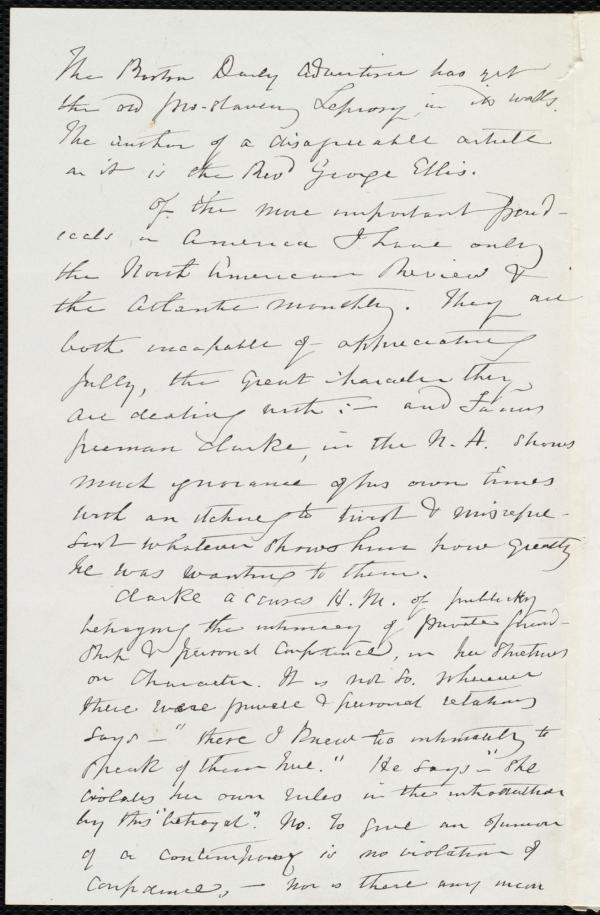 The Boston Daily Advertiser has yet
the old pro-slavery Leprosy in its walls.
The author of a disagreeable article
in it is the Revd George Ellis.
Of the more important period-
icals in America I have only
the North American Review &
the Atlantic Monthly. They are
both incapable of appreciating
fully, the great character they
are dealing with :- and James
freeman Clarke, in the N. A. shows
much ignorance of his own times
with an itching to twist & misrepre-
sent whatever shows him how greatly
he was wanting to them.
Clarke accuses H. M. of publicly
betraying the intimacy of private friend-
ship & personal confidence, in her strictures
on Character. It is not so. Wherever
there were private & personal relations
says - "there I knew too intimately to
speak of them here." He says - "She
violates her own rules in the introduction
by this "betrayal". No. To give an opinion
of a contemporary is no violation of
confidence, - nor is there any mean